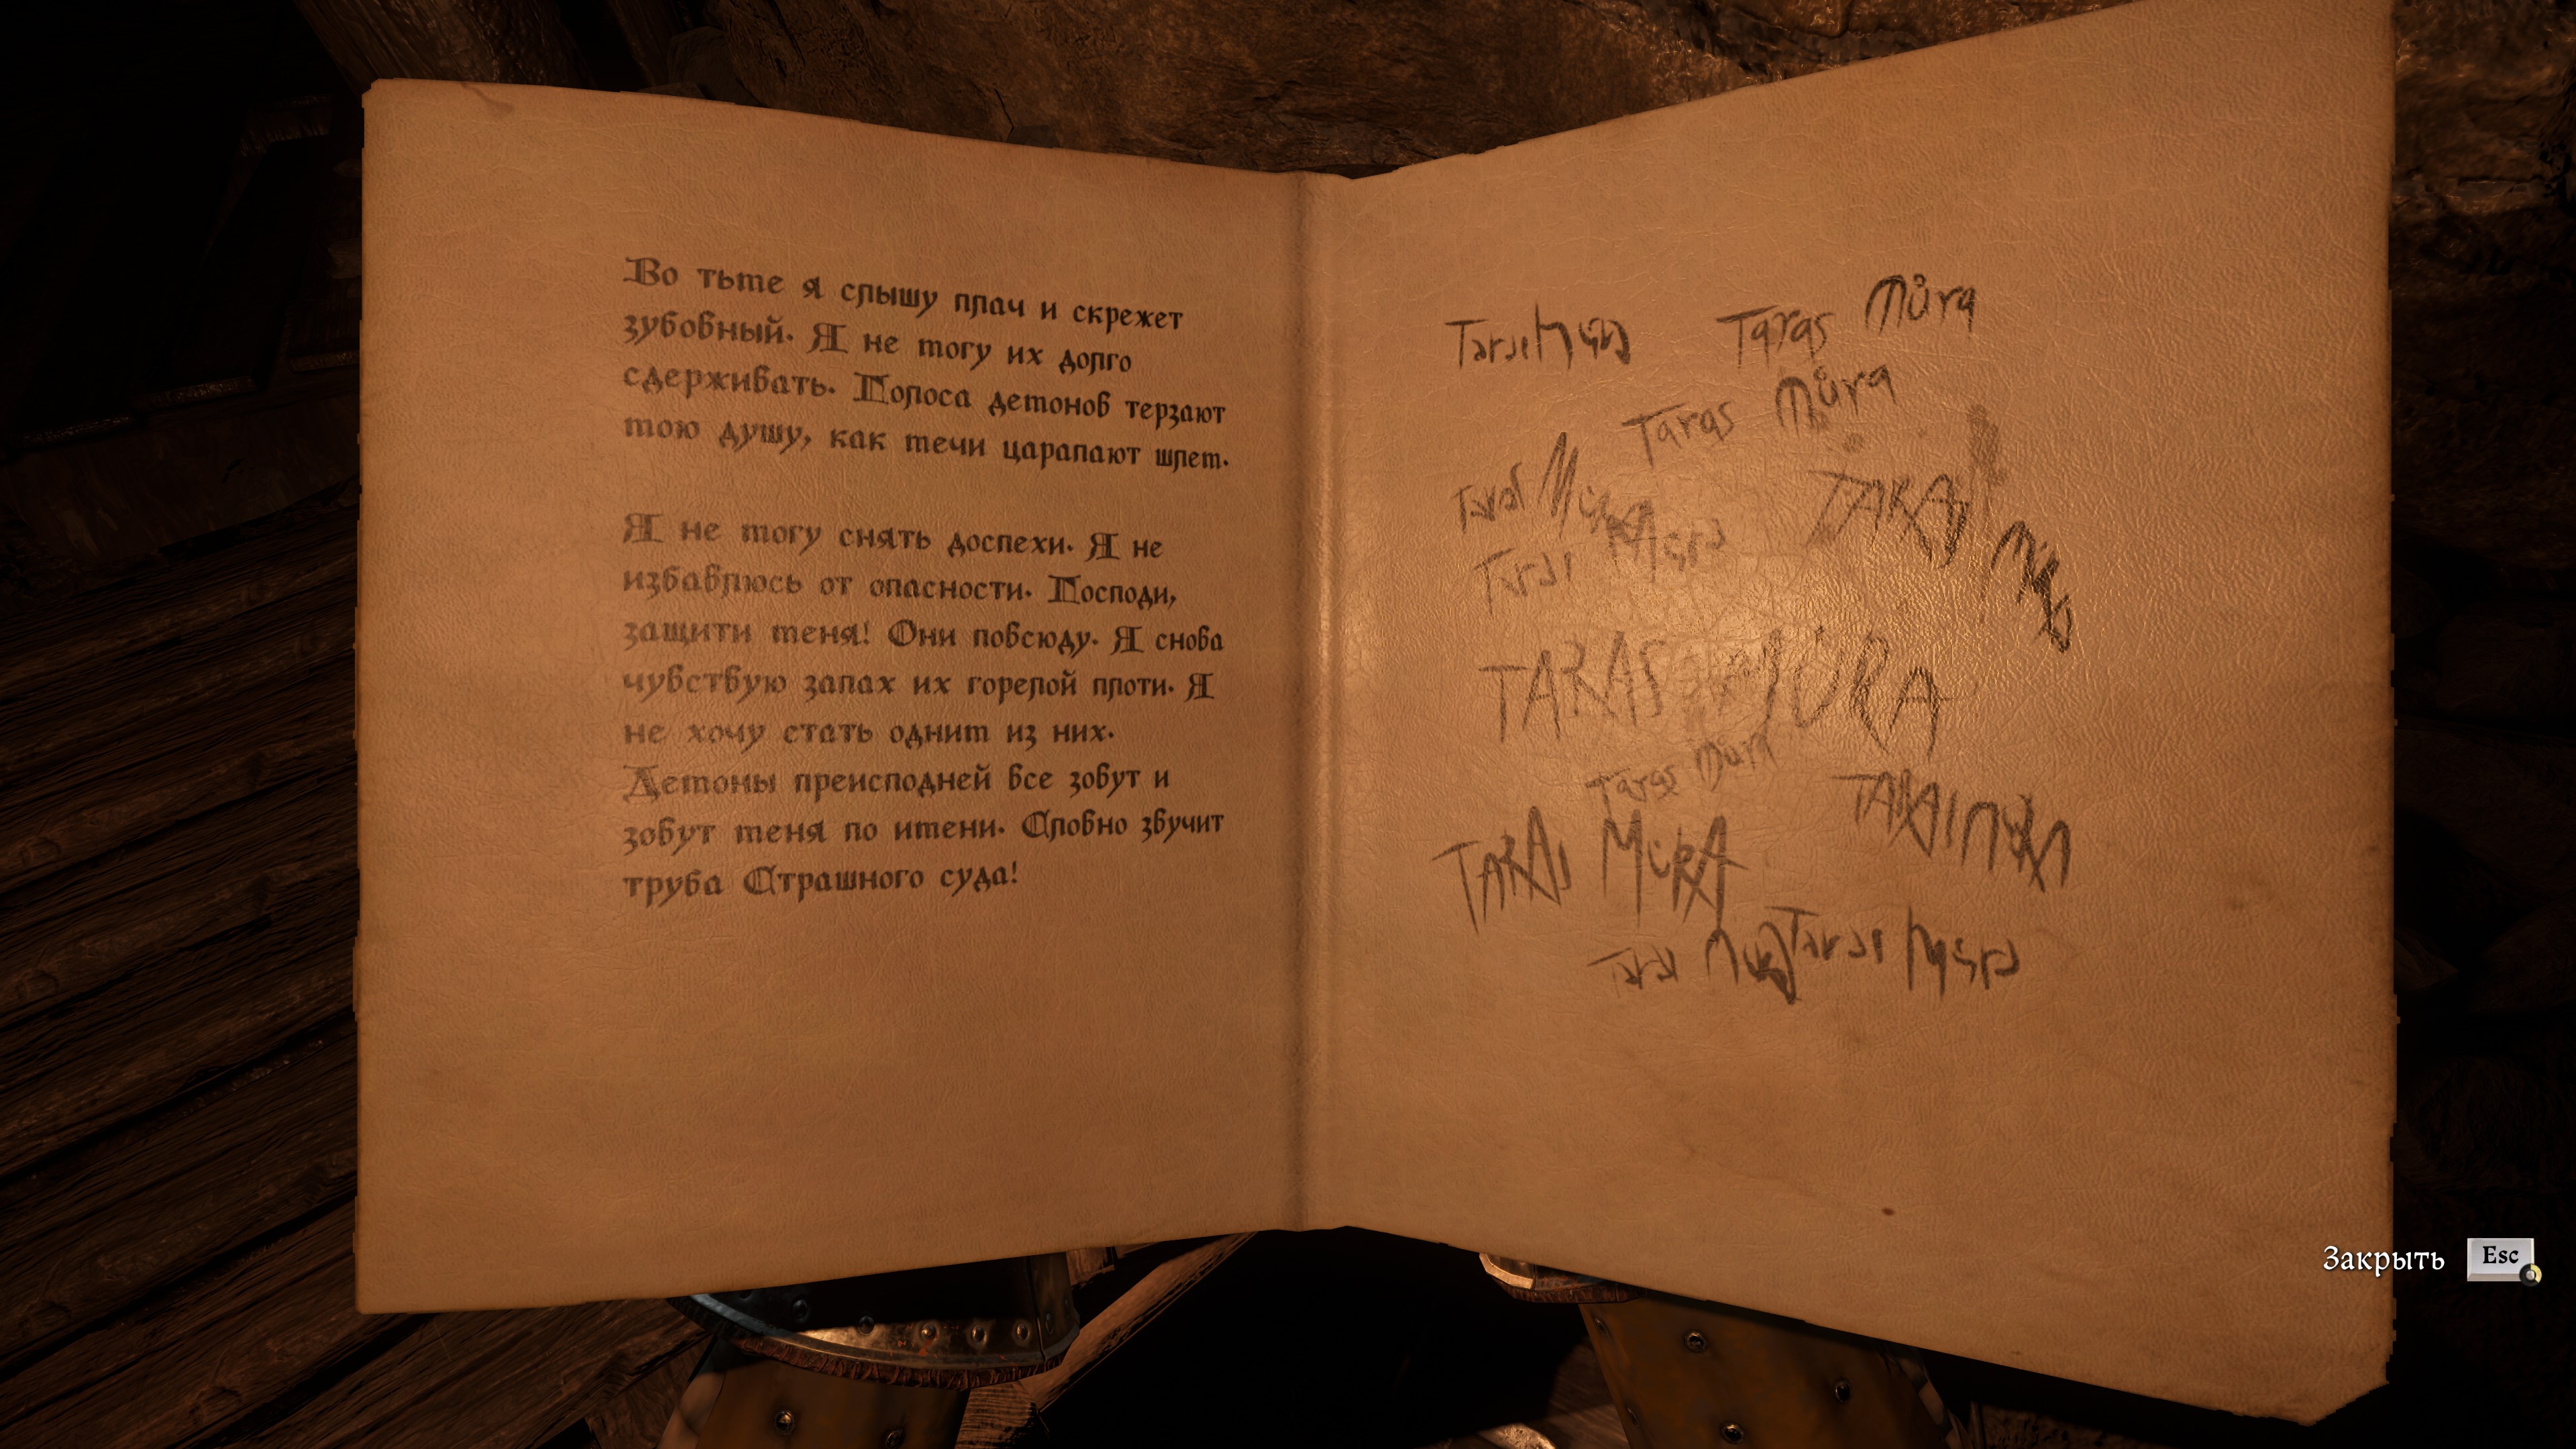 Во тьме я слышу плач и скрежет
зубовный. Я не могу их долго
сдерживать. Голоса демонов терзают
мою душу, как мечи царапают шлем.
Я не могу снять доспехи. Я не
избавлюсь от опасности. Господи,
защити меня! Они повсюду. Я снова
чувствую запах их горелой плоти. Я
не хочу стать одним из них.
Демоны преисподней все зовут и
зовут меня по имени. Словно звучит
труба Страшного суда!
Taras Můra
Taras Můra
TARAS MŮRA
Taras Můra
Закрыть Esc